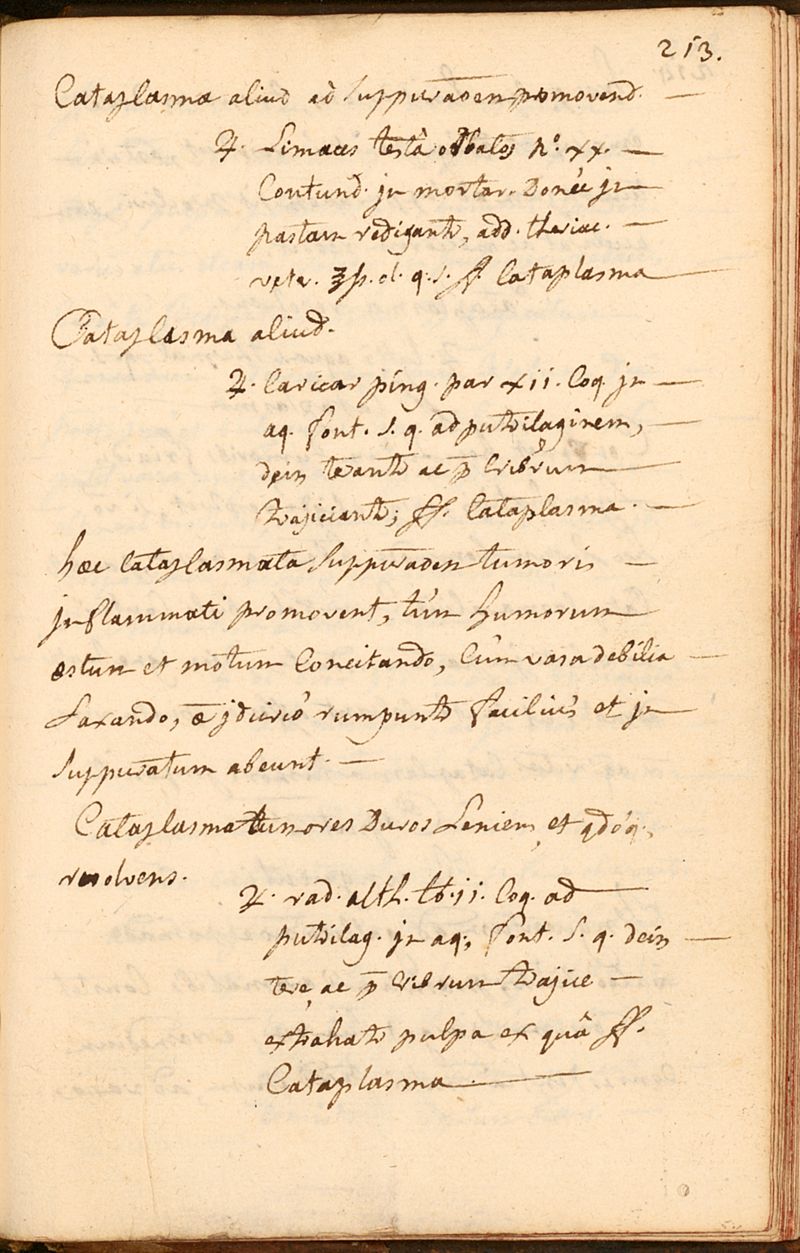 213.
Cataplasma aliud ad suppura͞oem promovend. —
♃. Limaces testâ orbatos n.° xx. —
Contund. jn mortar. Donéc jn —
pastam redigantr, add. theriac. —
veter. ℥ß. ol. q. s. ff. Cataplasma —
Cataplasma aliud.
♃. Caricar ping. par xii. Coq. jn —
aq. font. s. q. ad putrilaginem, —
dein terantr ac p̄ Cribrum —
trajiciantr; ff. Cataplasma. —
hæc Cataplasmata suppura͞oem tumoris —
jnflammati promovent, tùm humorum
æstum et motum Concitando, Cùm vasa debilia —
Laxando, rumpuntr faciliùs et jn —
suppuratum abeunt. —
Cataplasma tumores Duros Leniens et qdóq.
resolvens.
♃. rad. alth. ℔.ii. Coq. ad
putrilag. jn aq. font. s. q. dein —
tere ac p̄ Cribrum trajice —
extrahatr pulpa ex quâ ff.
Cataplasma —